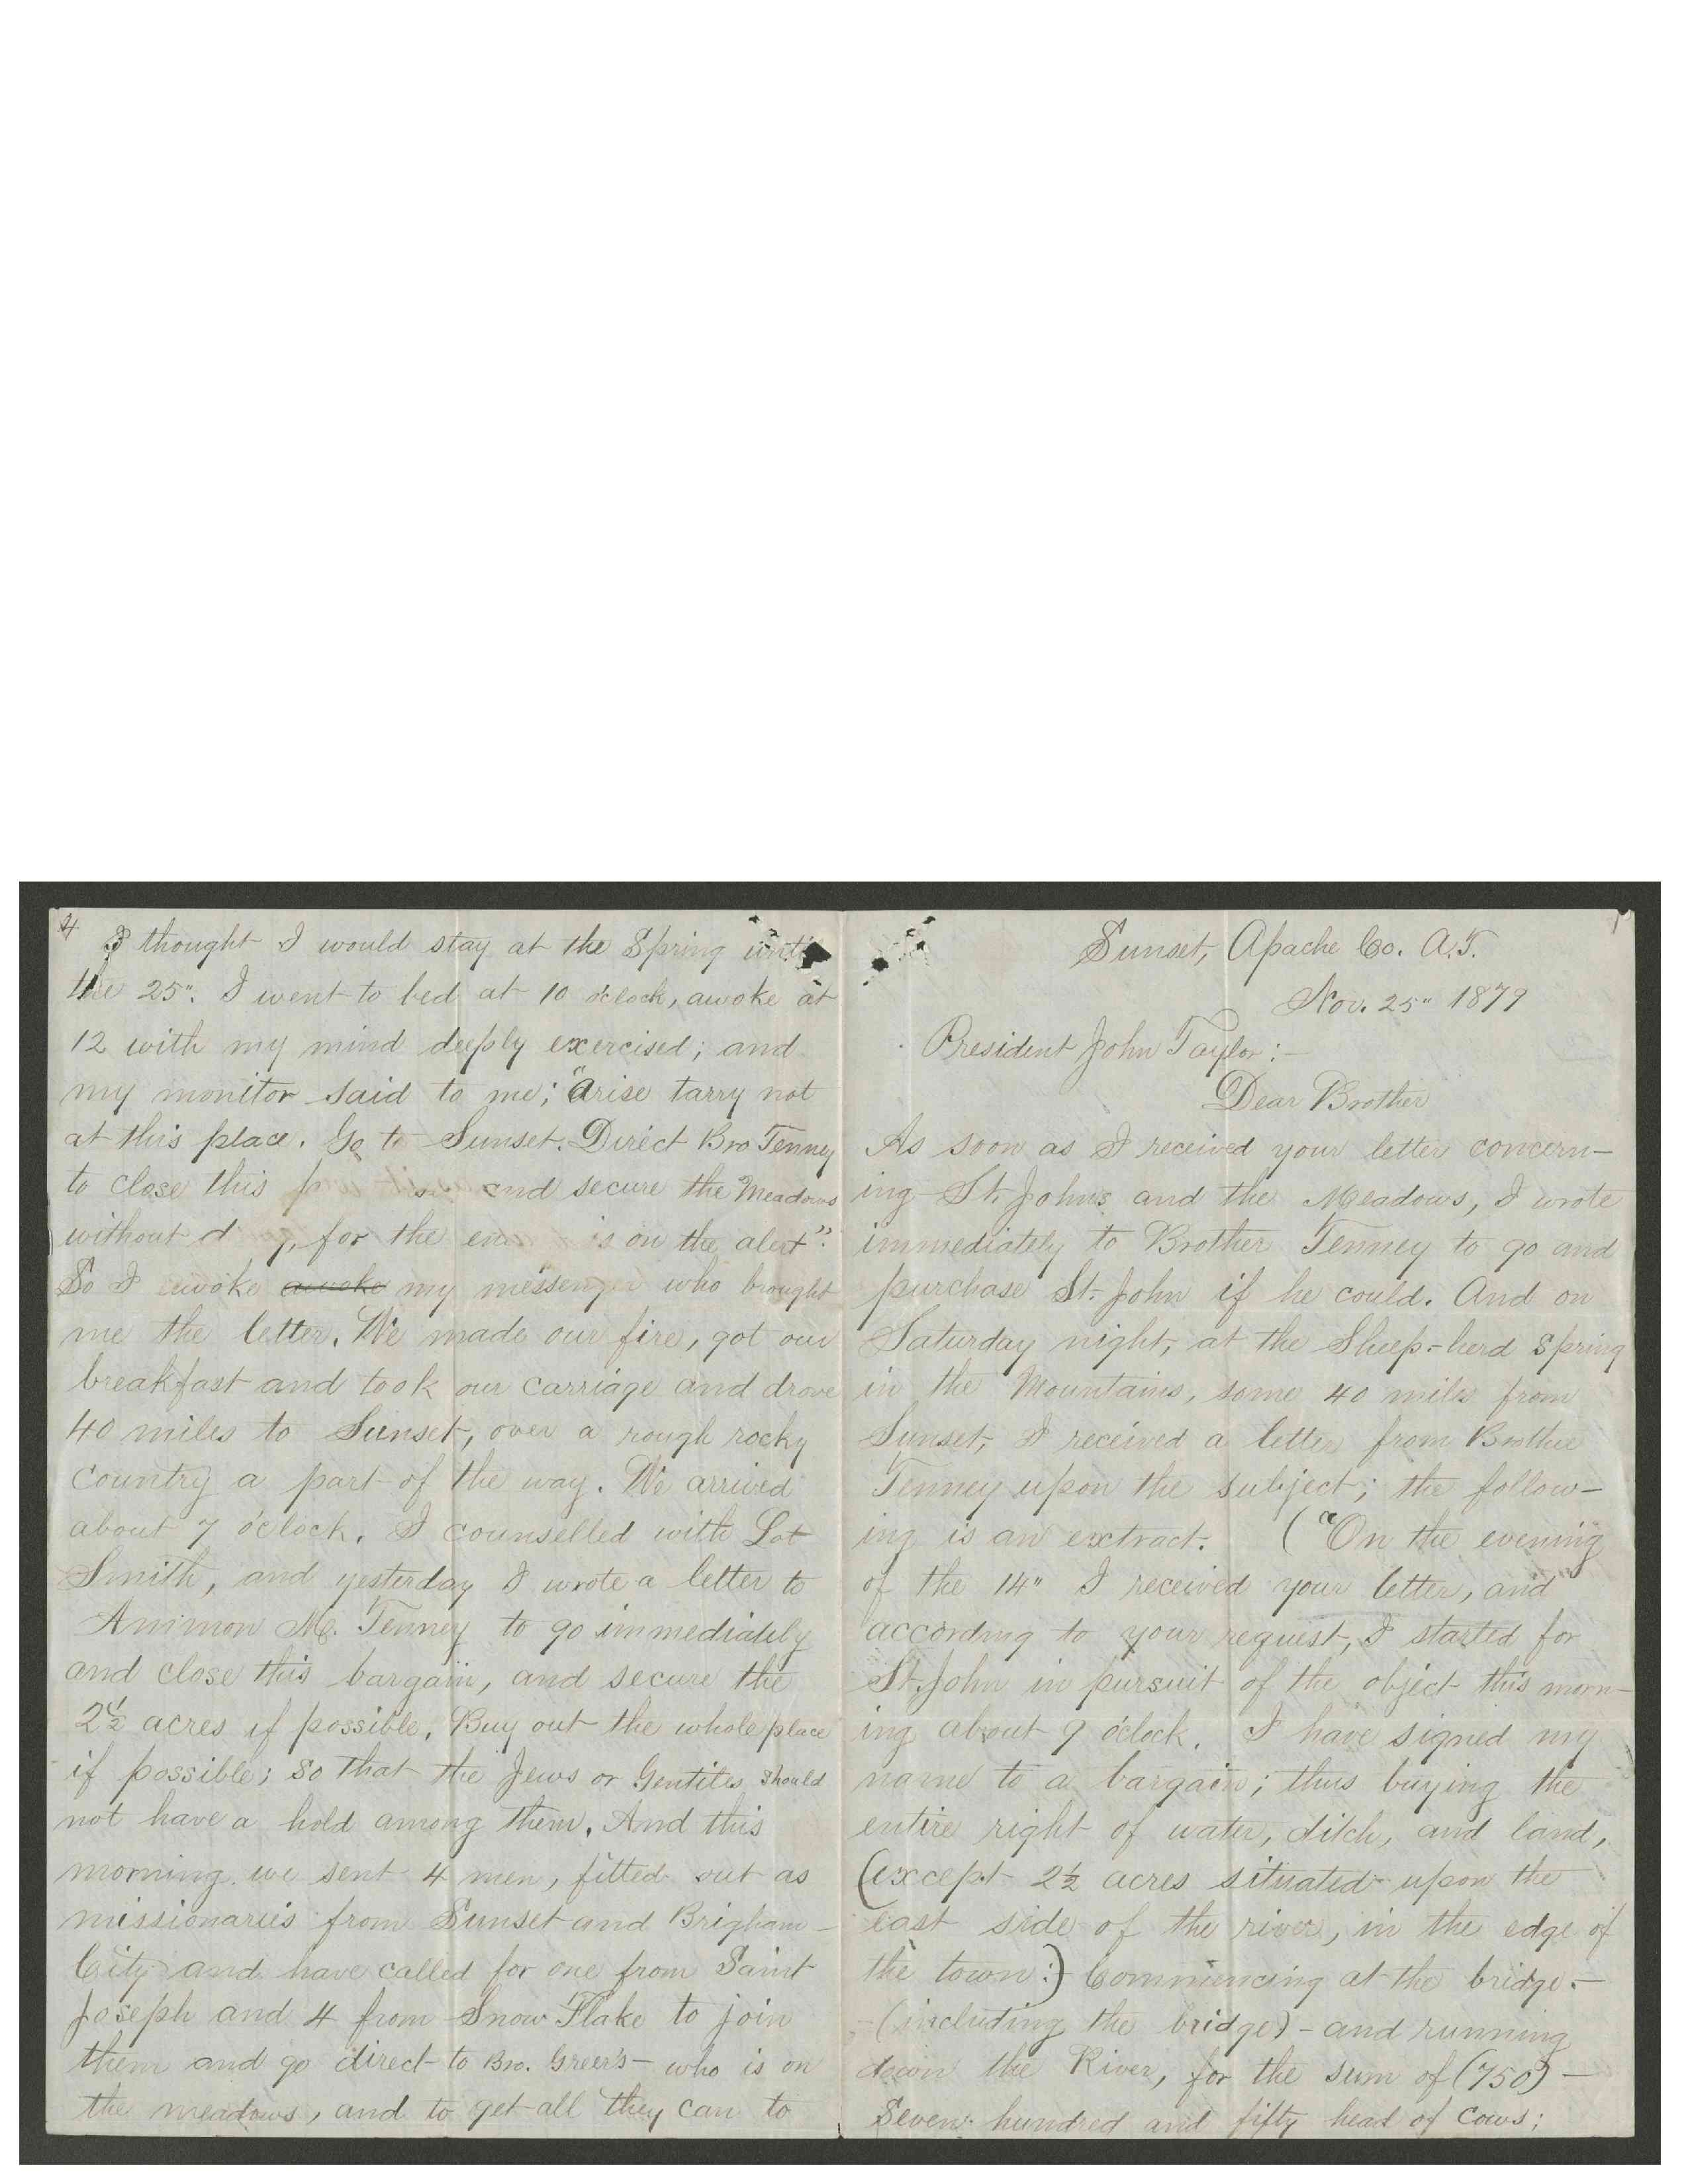 4
I thought I would stay at the Spring until
the 25". I went to bed at 10 o'clock, awoke at
12 with my mind deeply exercised; and
my monitor said to me; "Arise tarry not
at this place. Go to Sunset. Direct Bro Tenney
to close this and secure the Meadows
without for the is on the alert".
So I awoke awoke my messenger who brought
me the letter. We made our fire, got our
breakfast and took our carriage and drove
40 miles to Sunset, over a rough rocky
country a part of the way. We arrived
about 7 o'clock. I counselled with Lot
Smith, and yesterday I wrote a letter to
Ammon M. Tenney to go immediately
and close this bargain, and secure the
2½ acres if possible. Buy out the whole place
if possible; so that the Jews or Gentiles should
not have a hold among them. And this
morning we sent 4 men, fitted out as
missionaries from Sunset and Brigham
City and have called for one from Saint
Joseph and 4 from Snow Flake to join
them and go direct to Bro. Greer's - who is on
the meadows, and to get all they can to
1
Sunset, Apache Co. A.T.
Nov. 25" 1879
President John Taylor:-
Dear Brother
As soon as I received your letter concern-
ing St. Johns and the Meadows, I wrote
immediately to Brother Tenney to go and
purchase St. John if he could. And on
Saturday night, at the Sheep-herd Spring
in the Mountains, some 40 miles from
Sunset, I received a letter from Brother
Tenney upon the subject; the follow-
ing is an extract. ("On the evening
of the 14" I received your letter, and
according to your request, I started for
St. John in pursuit of the object this morn-
ing about 9 o'clock. I have signed my
name to a bargain; thus buying the
entire right of water, ditch, and land,
(except 2½ acres situated upon the
east side of the river, in the edge of
the town:) Commencing at the bridge -
- (including the bridge) - and running
down the River, for the sum of (750) -
Seven hundred and fifty head of cows;